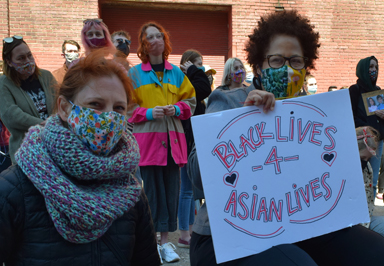 BLACK LIVES
-4-
ASIAN LIVES